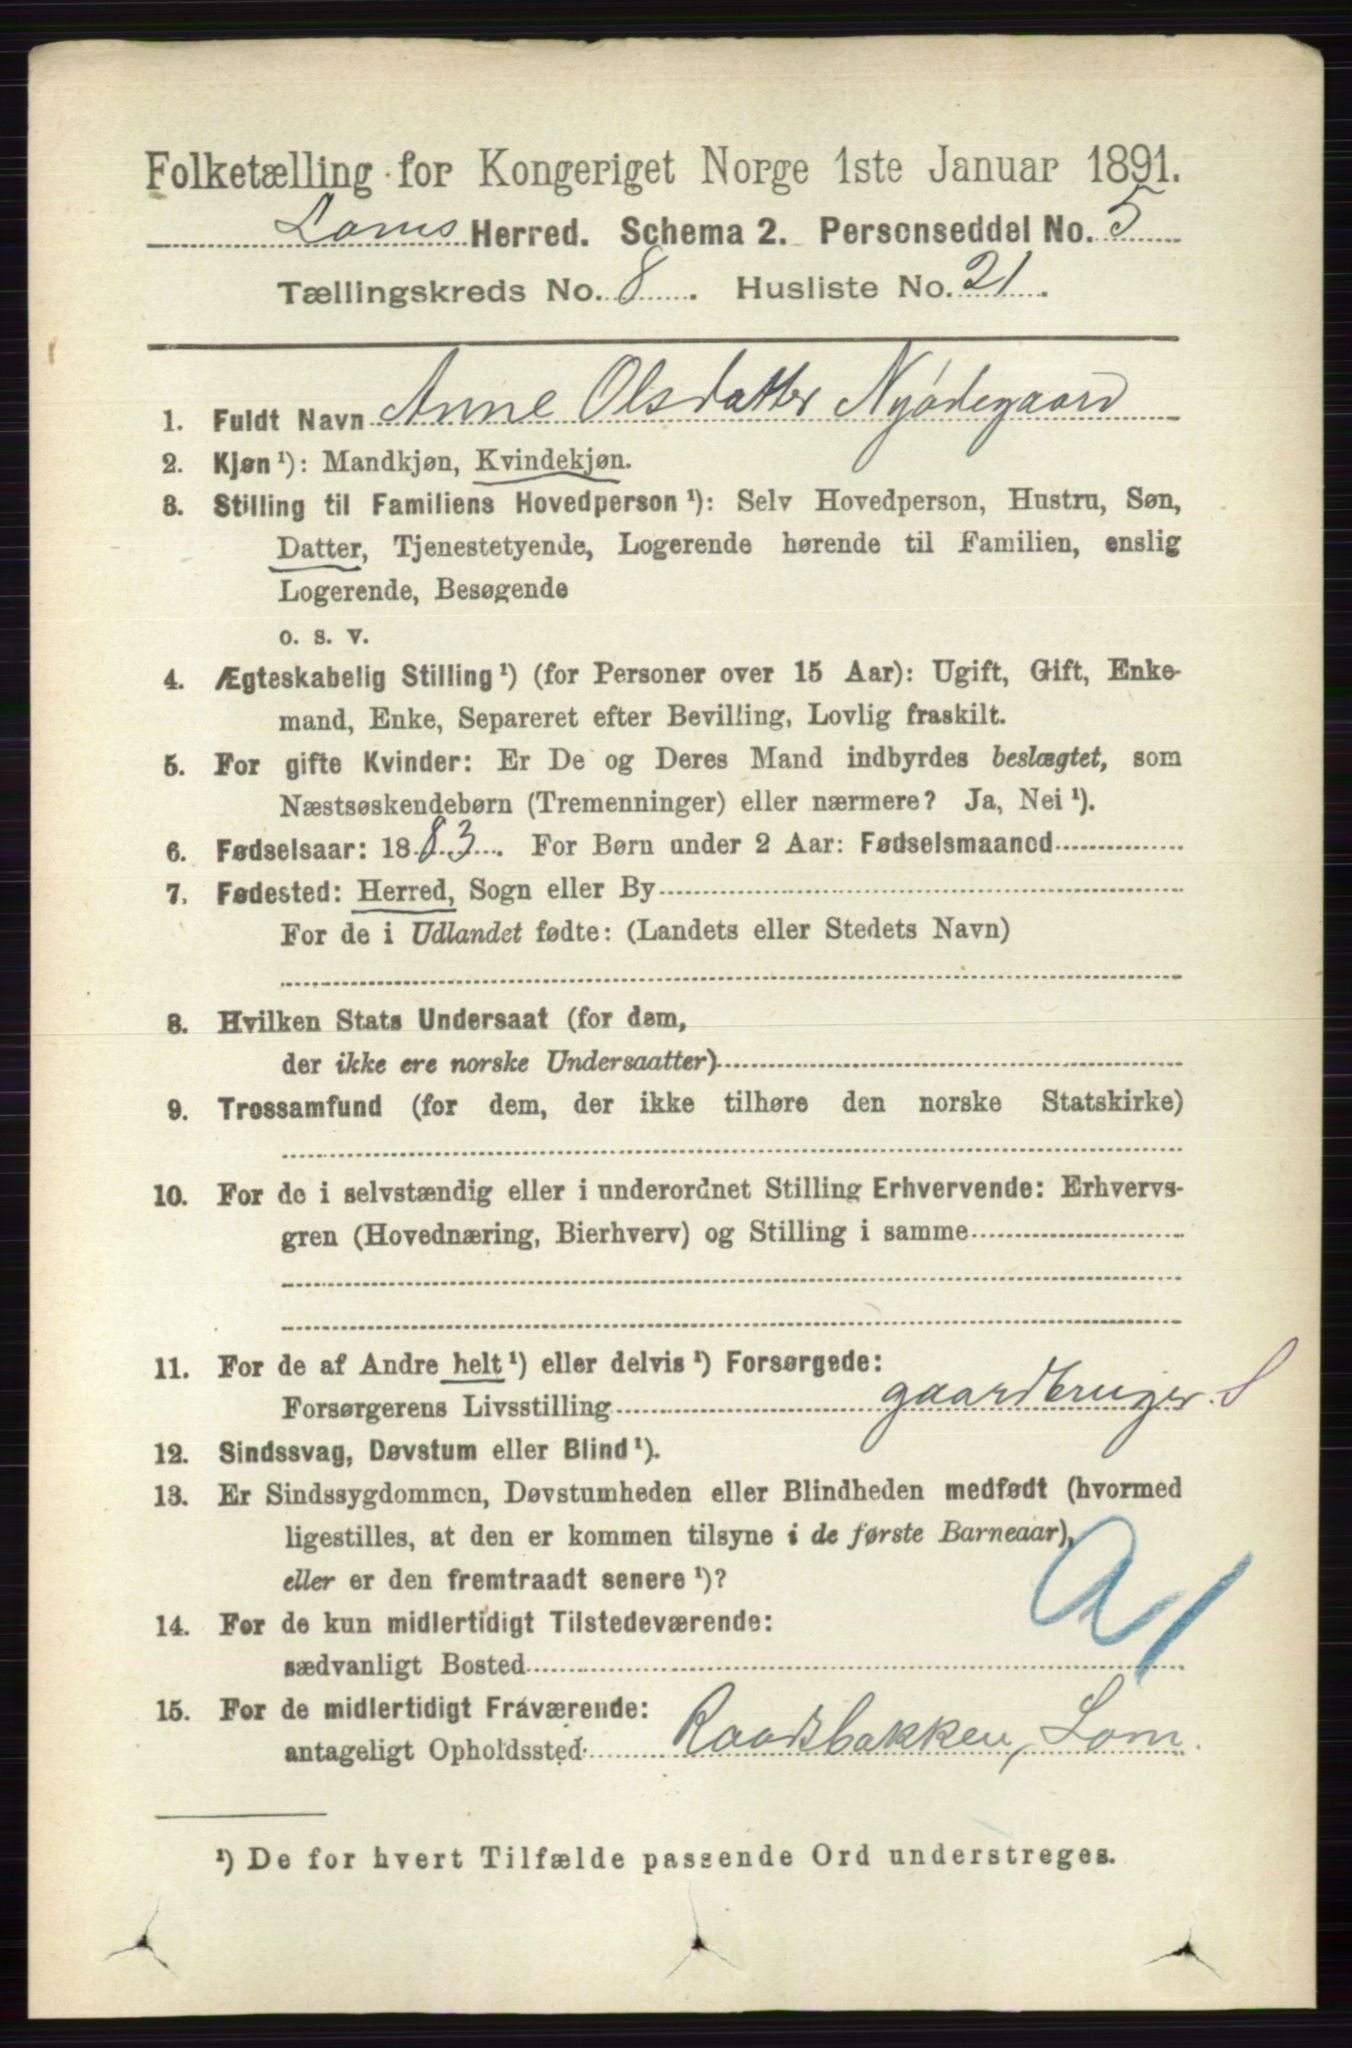 Folketælling for Kongeriget Norge 1ste Januar 1891.
Loms Herred. Schema 2. Personseddel No. 5
Tællingskreds No. 8. Husliste No. 21.
1. Fuldt Navn Anne Olsdatter Nyødegaard
2. Kjøn¹): Mandkjøn, Kvindekjøn.
3. Stilling til Familiens Hovedperson¹): Selv Hovedperson, Hustru, Søn,
Datter, Tjenestetyende, Logerende hørende til Familien, enslig
Logerende, Besøgende
o. s. v.
4. Ægteskabelig Stilling¹) (for Personer over 15 Aar): Ugift, Gift, Enke-
mand, Enke, Separeret efter Bevilling, Lovlig fraskilt.
5. For gifte Kvinder: Er De og Deres Mand indbyrdes beslægtet, som
Næstsøskendebørn (Tremenninger) eller nærmere? Ja, Nei¹).
6. Fødselsaar: 1883. For Børn under 2 Aar: Fødselsmaaned
7. Fødested: Herred, Sogn eller By
For de i Udlandet fødte: (Landets eller Stedets Navn)
8. Hvilken Stats Undersaat (for dem,
der ikke ere norske Undersaatter)
9. Trossamfund (for dem, der ikke tilhøre den norske Statskirke)
10. For de i selvstændig eller i underordnet Stilling Erhvervende: Erhvervs-
gren (Hovednæring, Bierhverv) og Stilling i samme
11. For de af Andre helt¹) eller delvis¹) Forsørgede:
Forsørgerens Livsstilling gaardbruger. S
12. Sindssvag, Døvstum eller Blind¹).
13. Er Sindssygdommen, Døvstumheden eller Blindheden medfødt (hvormed
ligestilles, at den er kommen tilsyne i de første Barneaar),
eller er den fremtraadt senere¹)?
14. For de kun midlertidigt Tilstedeværende:
sædvanligt Bosted
15. For de midlertidigt Fraværende:
antageligt Opholdssted Raadsbakken, Lom.
¹) De for hvert Tilfælde passende Ord understreges.